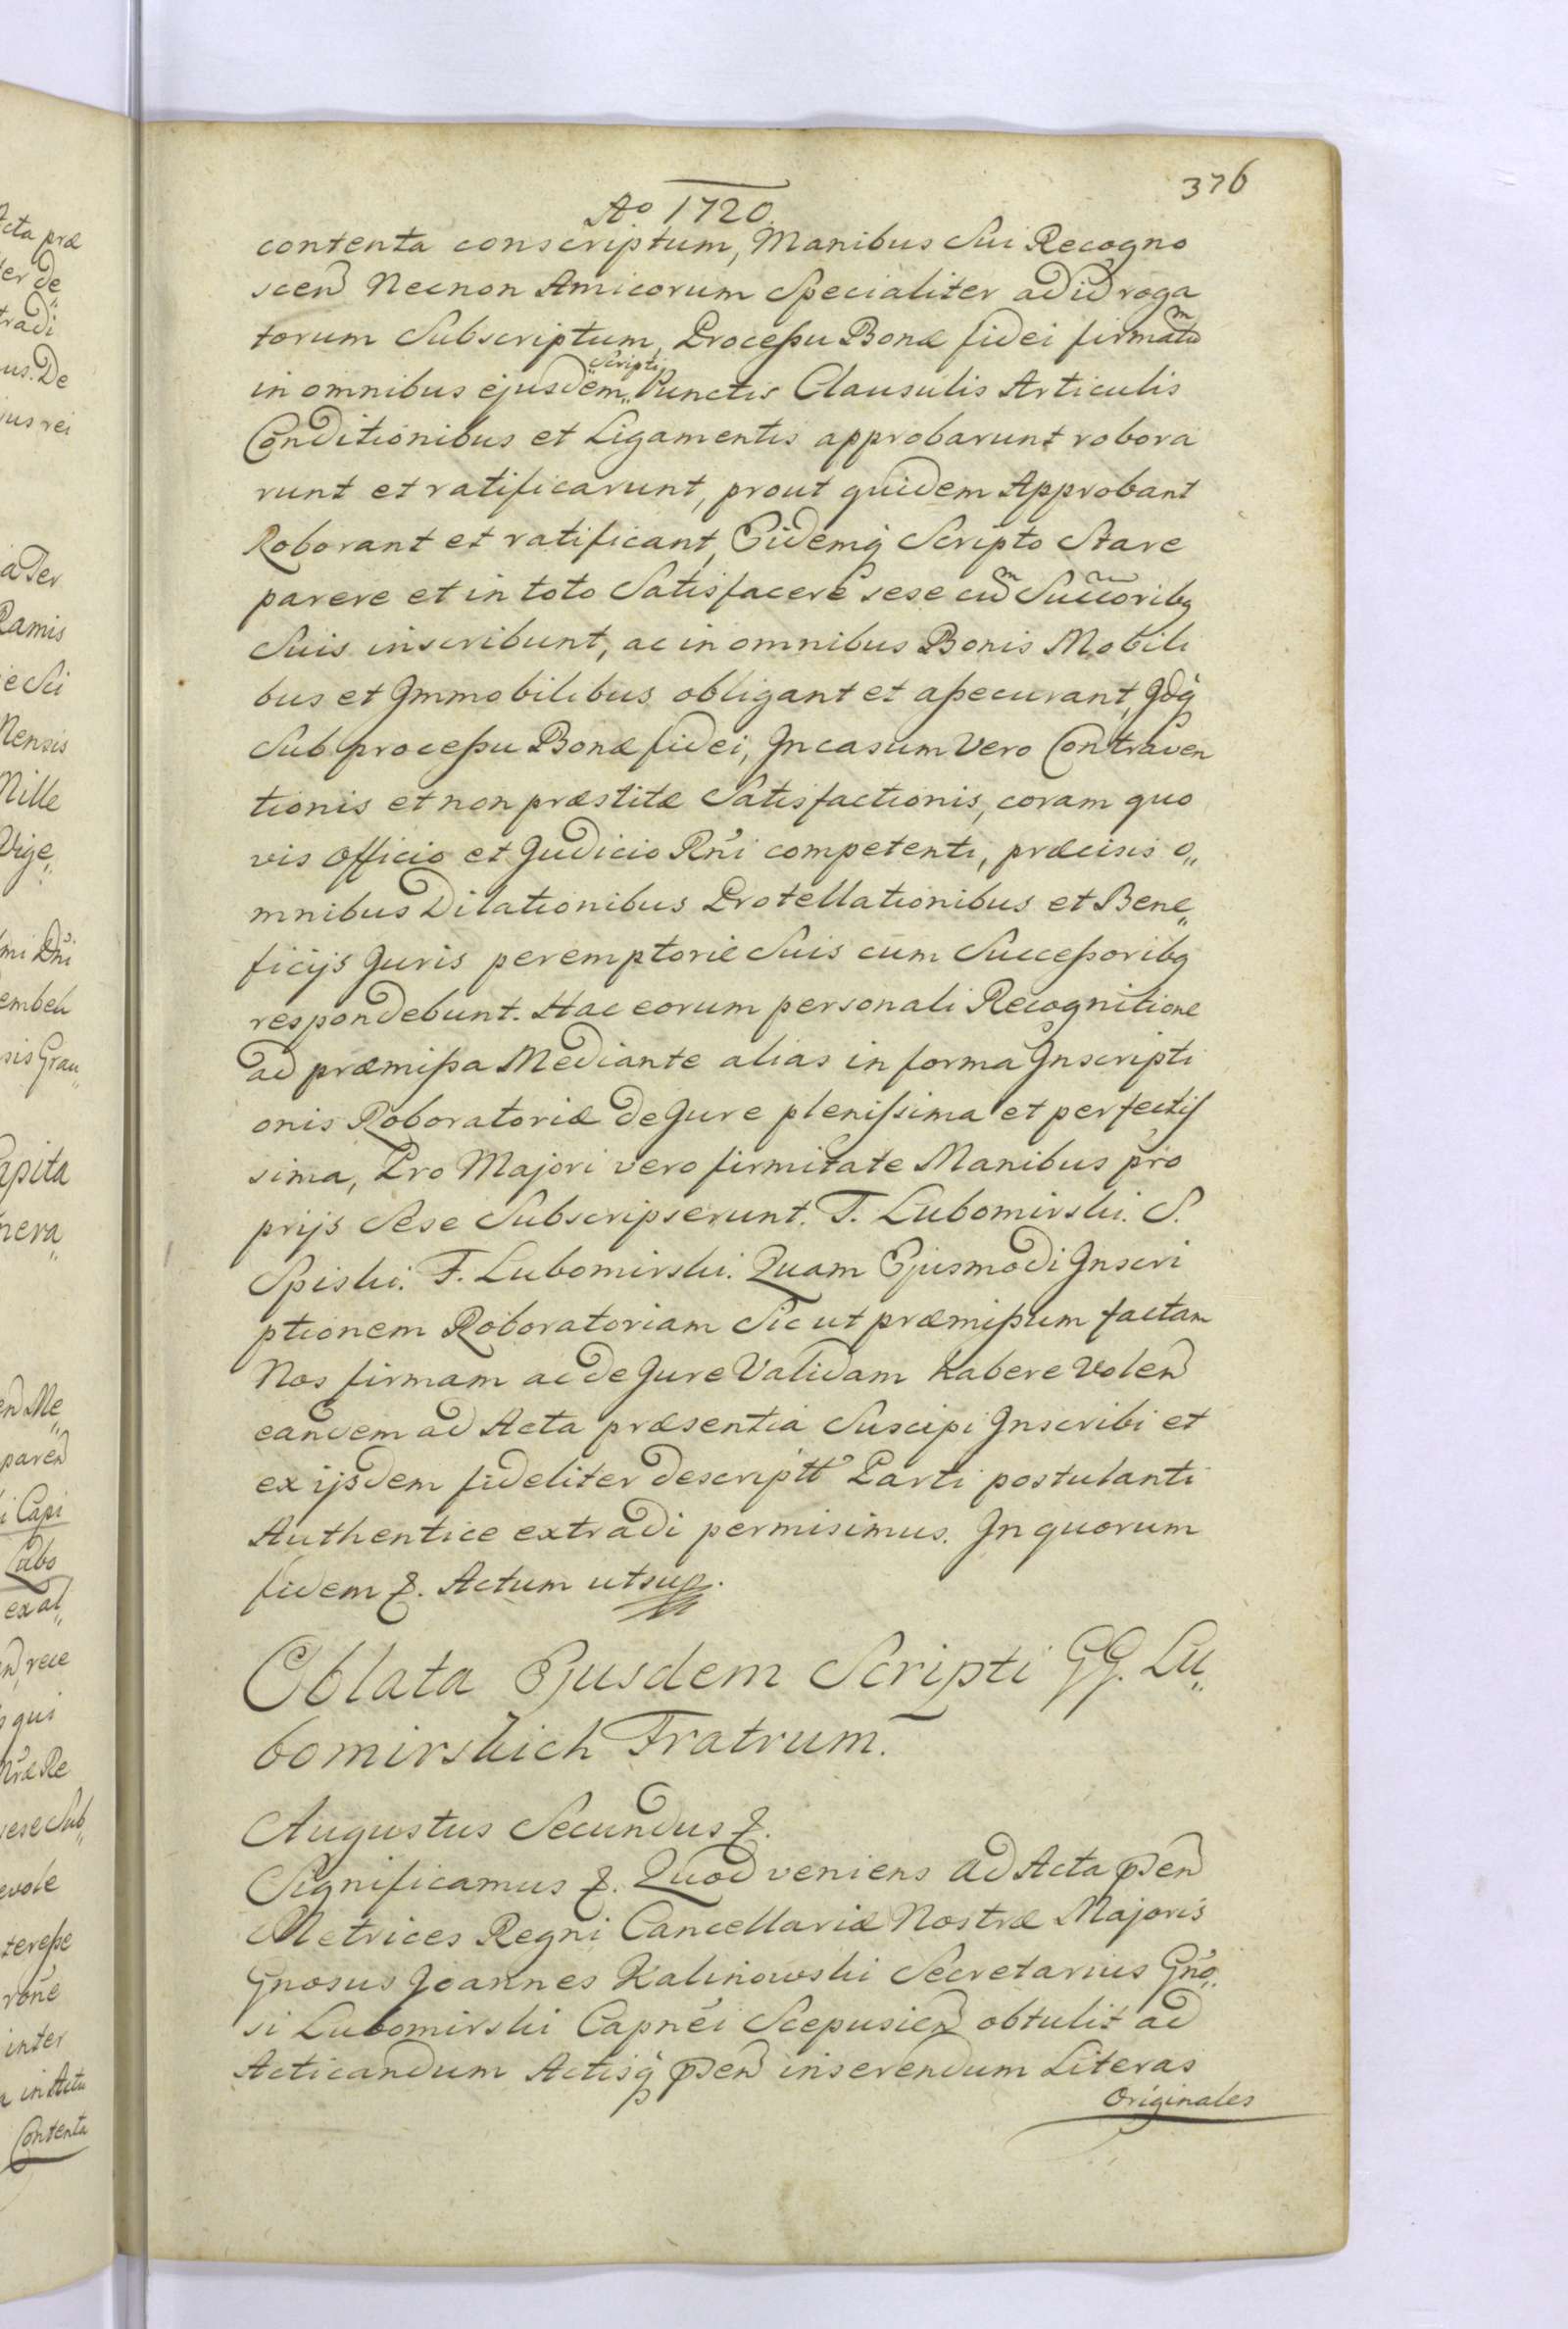 376
Aº 1720.
contenta conscriptum, Manibus Sui Recogno
scen Necnon Amicorum Specialiter ad id roga
torum Subscriptum, Processu Bonæ fidei firmatum
in omnibus ejusdem„ Scripti Punctis Clausulis Articulis
Conditionibus et Ligamentis approbarunt robora
runt et ratificarunt, prout quidem Approbant
Roborant et ratificant, Eidemq Scripto Stare
parere et in toto Satisfacere sese cum Succoribq
Suis inscribunt, ac in omnibus Bonis Mobili
bus et Immobilibus obligant et assecurant, Idq
Sub processu Bonæ fidei, In casum Vero Contraven
tionis et non præstitæ Satisfactionis, coram quo
vis Officio et Judicio Rñi competenti, præcisis o„
mnibus Dilationibus Protellationibus et Bene„
ficijs Juris peremptorie Suis cum Successoribq
respondebunt. Hac eorum personali Recognitione
ad præmissa Mediante alias in forma Inscripti
onis Roboratoriæ de Jure plenissima et perfectis
sima, Pro Majori vero firmitate Manibus pro
prijs Sese Subscripserunt. T. Lubomirski. S.
Spiski. F. Lubomirski. Quam Ejusmodi Inscri
ptionem Roboratoriam Sic ut præmissum factam
Nos firmam ac de Jure Validam habere Volen
eandem ad Acta præsentia Suscipi Inscribi et
ex ijsdem fideliter descriptt Parti postulanti
Authentice extradi permisimus. In quorum
fidem &. Actum ut sup.
Oblata Ejusdem Scripti GG. Lu„
bomirskich Fratrum.
Augustus Secundus &.
Significamus &. Quod veniens ad Acta pñsen
Metrices Regni Cancellariæ Nostræ Majoris
Gnosus Joannes Kalinowski Secretarius Gño„
si Lubomirski Capnei Scepusien obtulit ad
Acticandum Actisq pñsen inserendum Literas
Originales